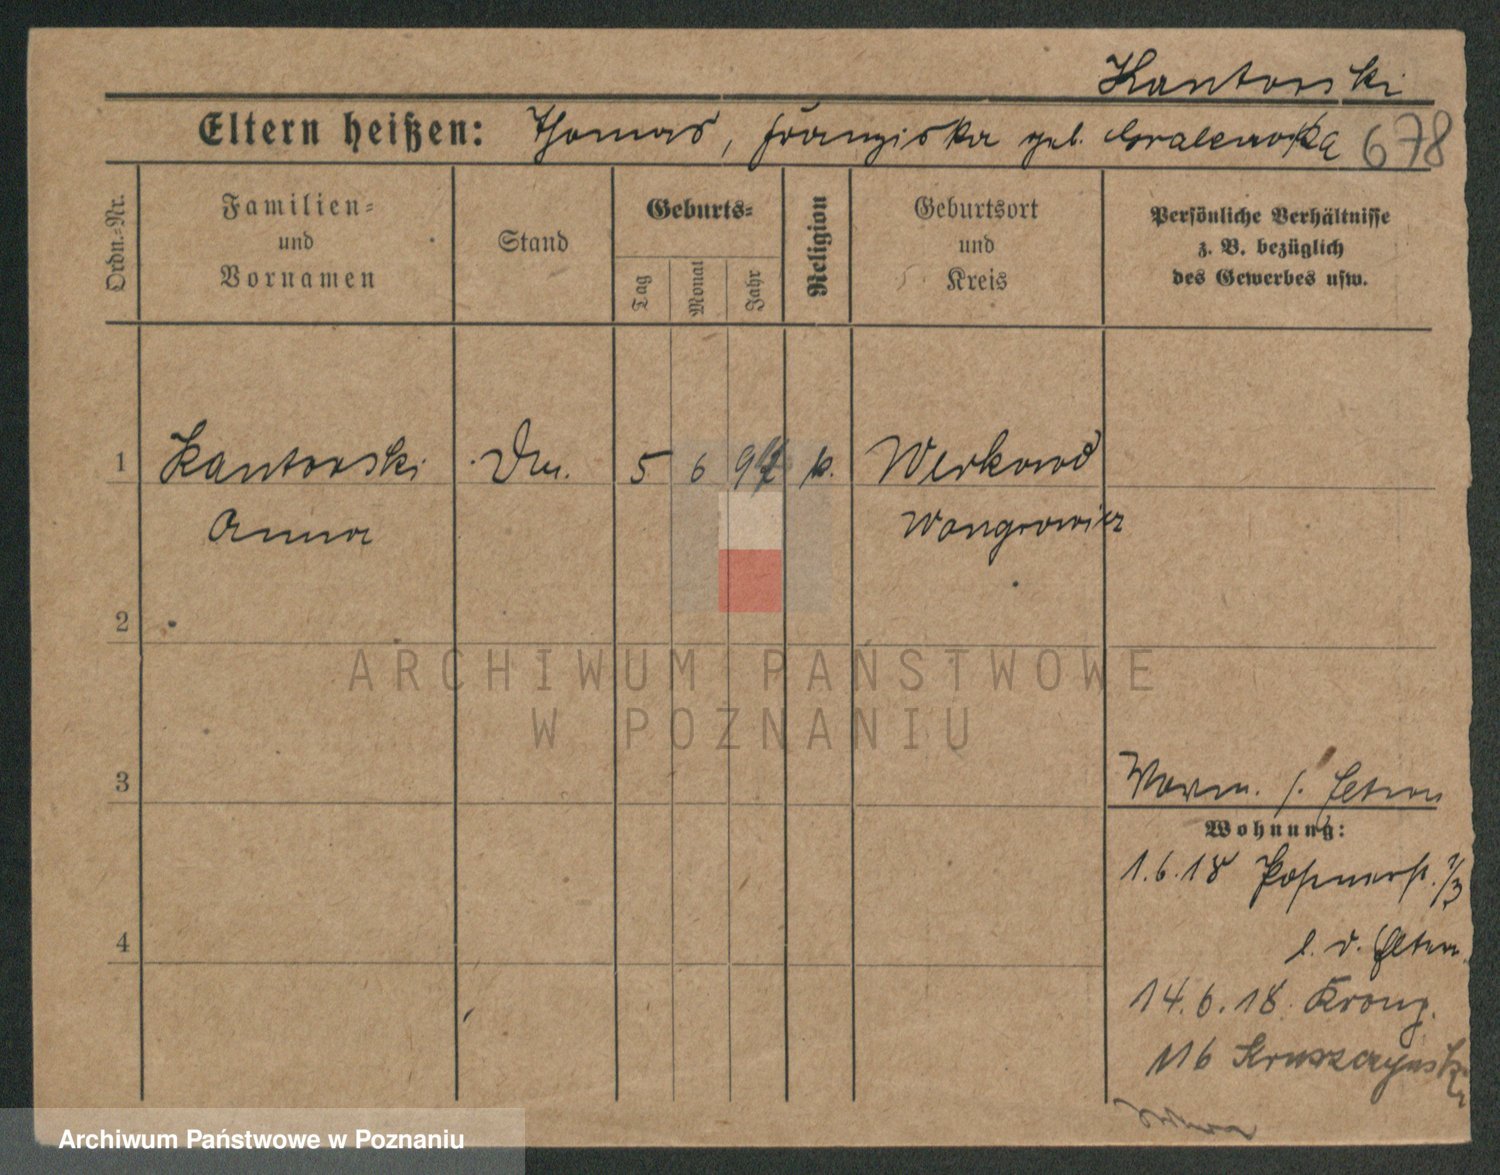 Kantorski
Eltern heißen: Thomas, Franziska geb. Gralewska 678
Ordn.-Nr.
Familien-
und
Vornamen
Stand
Geburts-
Tag
Monat
Jahr
Religion
Geburtsort
und
Kreis
Persönliche Verhältnisse
z. B. bezüglich
des Gewerbes usw.
1 Kantorski 5 6 97 k. Werkowo
Anna Wongrowitz
2
ARCHIWUM PAŃSTWOWE
W POZNANIU
3
Wohnung:
1.6.18 Posenerst. 7/3
b. d. Eltern
4
14.6.18 Kronp.
116 Kruszczynski
Archiwum Państwowe w Poznaniu